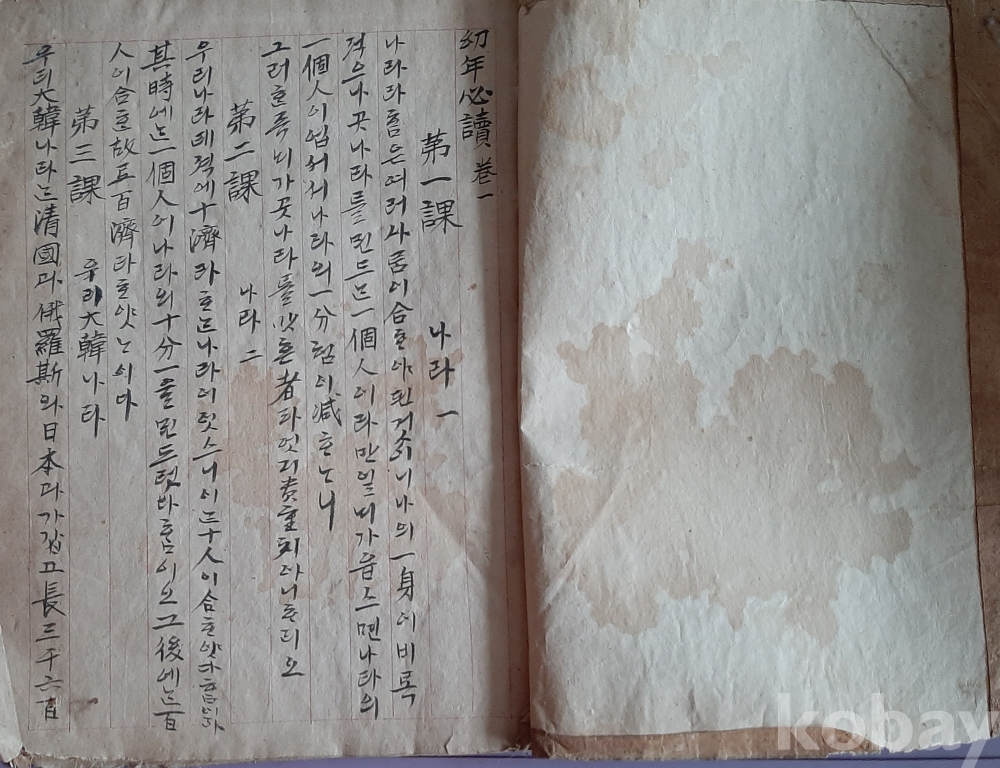 幼年必讀 卷一
第一課 나라 一
나라라 ᄒᆞᆷ은 여러 사ᄅᆞᆷ이 合ᄒᆞ야 된 거시니 나의 一身이 비록
적으나 곳 나라를 ᄆᆡᆫ드ᄂᆞᆫ 一個人이라 만일 ᄂᆡ가 업스면 나라의
一個人이 업셔셔 나라의 一分 힘이 减ᄒᆞᄂᆞ니
그러ᄒᆞᆫ즉 ᄂᆡ가 곳 나라를 ᄒᆞᆫ 者라 엇지 貴重치 아니ᄒᆞ리오
第二課 나라 二
우리나라 녜젹에 十濟라 ᄒᆞᄂᆞᆫ 나라이 잇스니 이ᄂᆞᆫ 十人이 合ᄒᆞ얏다 ᄒᆞᆷ이라
其時에ᄂᆞᆫ 一個人이 나라의 十分一을 ᄆᆡᆫ드럿다 ᄒᆞᆷ이오 그 後에ᄂᆞᆫ 百
人이 合ᄒᆞᆫ 故로 百濟라 ᄒᆞ얏ᄂᆞ이다
第三課 우리 大韓나라
우리 大韓나라ᄂᆞᆫ 清國과 俄羅斯와 日本과 가갑고 長三千六百
kobay